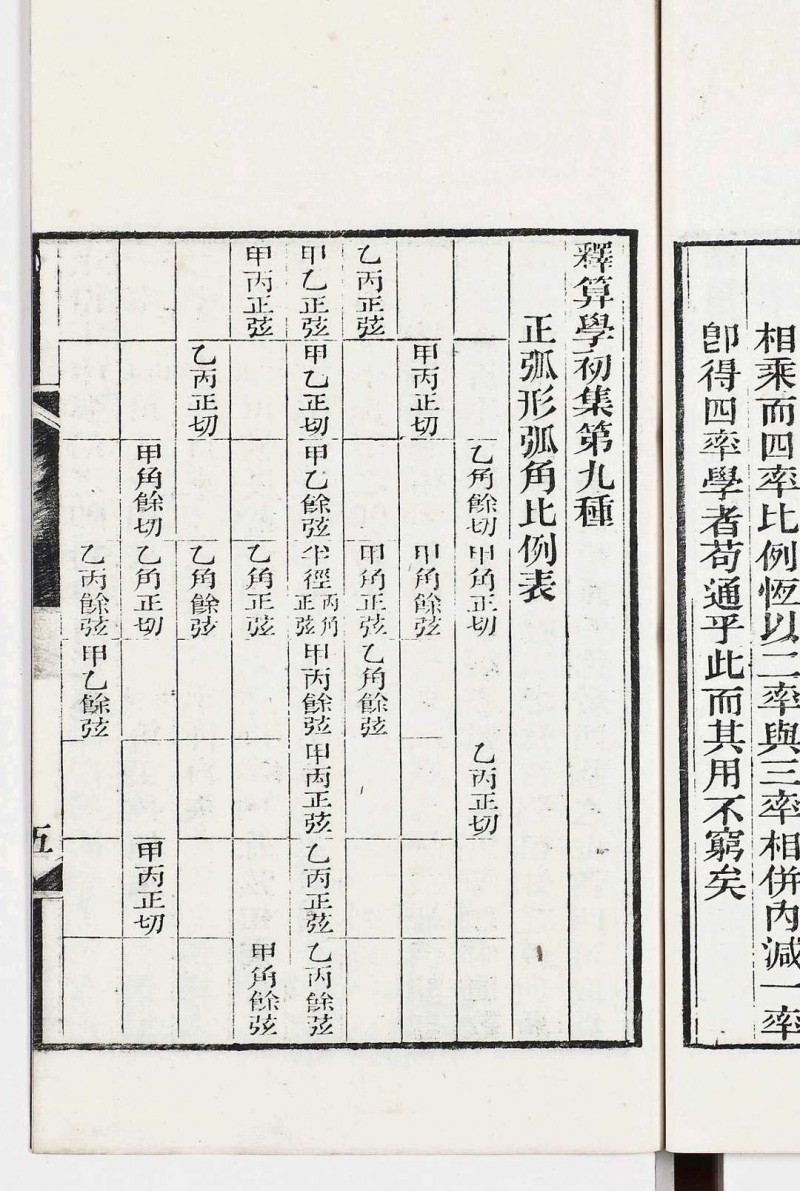 相乘而四率比例恆以二率與三率相併內減一率
卽得四率學者苟通乎此而其用不窮矣
釋算學初集第九種
正弧形弧角比例表
乙角餘切 甲角正弦 乙丙正切
甲丙正切 甲角餘弦
乙丙正弦 甲角正弦 乙角餘弦
甲乙正弦 甲乙正切 甲乙餘弦 半徑丙角正弦 甲丙餘弦 甲丙正弦 乙丙正弦 乙丙餘弦
甲丙正弦 乙角正弦 甲角餘弦
乙丙正切 乙角餘弦
甲角餘切 乙角正切 甲丙正切
乙丙餘弦 甲乙餘弦
五